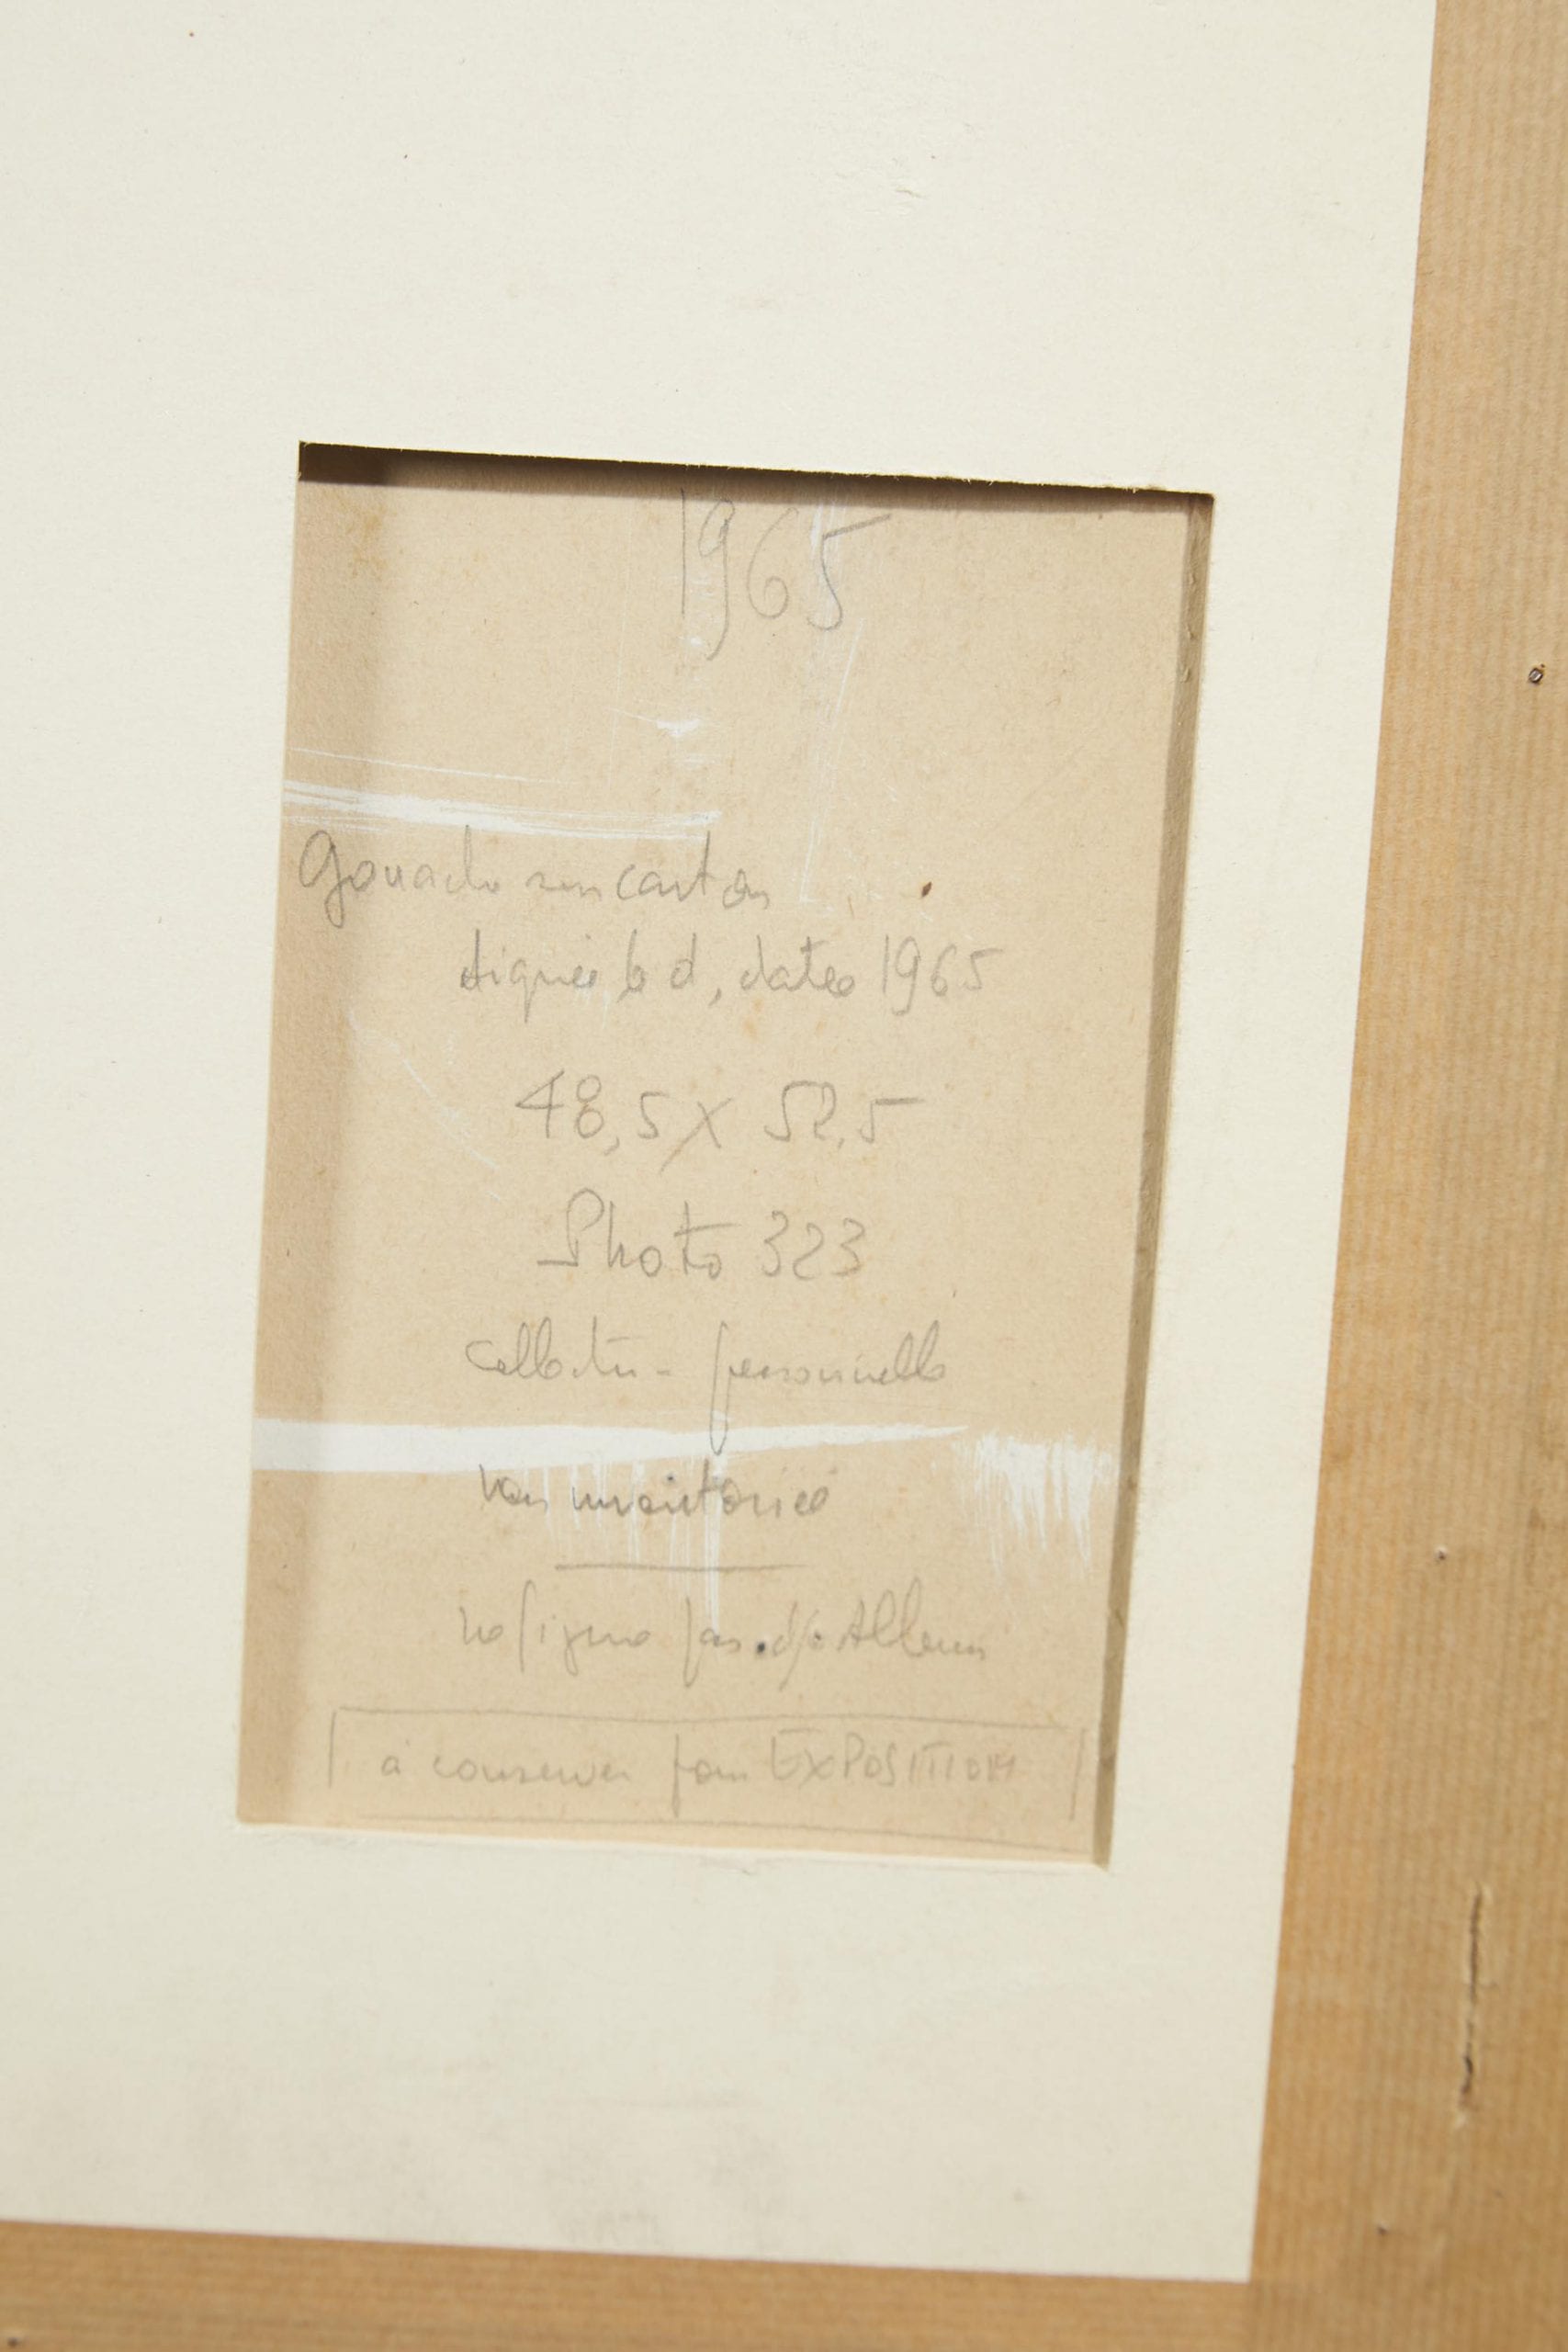 1965
Gouache sur carton
signée b d, datée 1965
48,5 X 52,5
Photo 323
collection personnelle
non inventoriée
ne figure pas ds Album
à conserver pour EXPOSITION